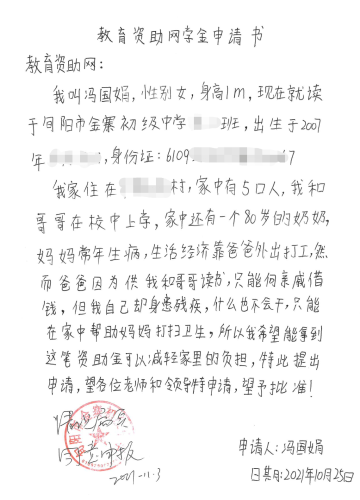 教育资助网学金申请书
教育资助网：
我叫冯国娟，性别女，身高1m，现在就读
于旬阳市金寨初级中学 班，出生于2007
年 ，身份证：6109 7
我家住在 村，家中有5口人，我和
哥哥在校中上学，家中还有一个80岁的奶奶，
妈妈常年生病，生活经济靠爸爸外出打工，然
而爸爸因为供我和哥哥读书，只能向亲戚借
钱，但我自己却身患残疾，什么也不会干，只能
在家中帮助妈妈打扫卫生，所以我希望能拿到
这笔资助金可以减轻家里的负担，特此提出
申请，望各位老师和领导特申请，望予批准！
申请人：冯国娟
2021.11.3
日其月：2021年10月25日